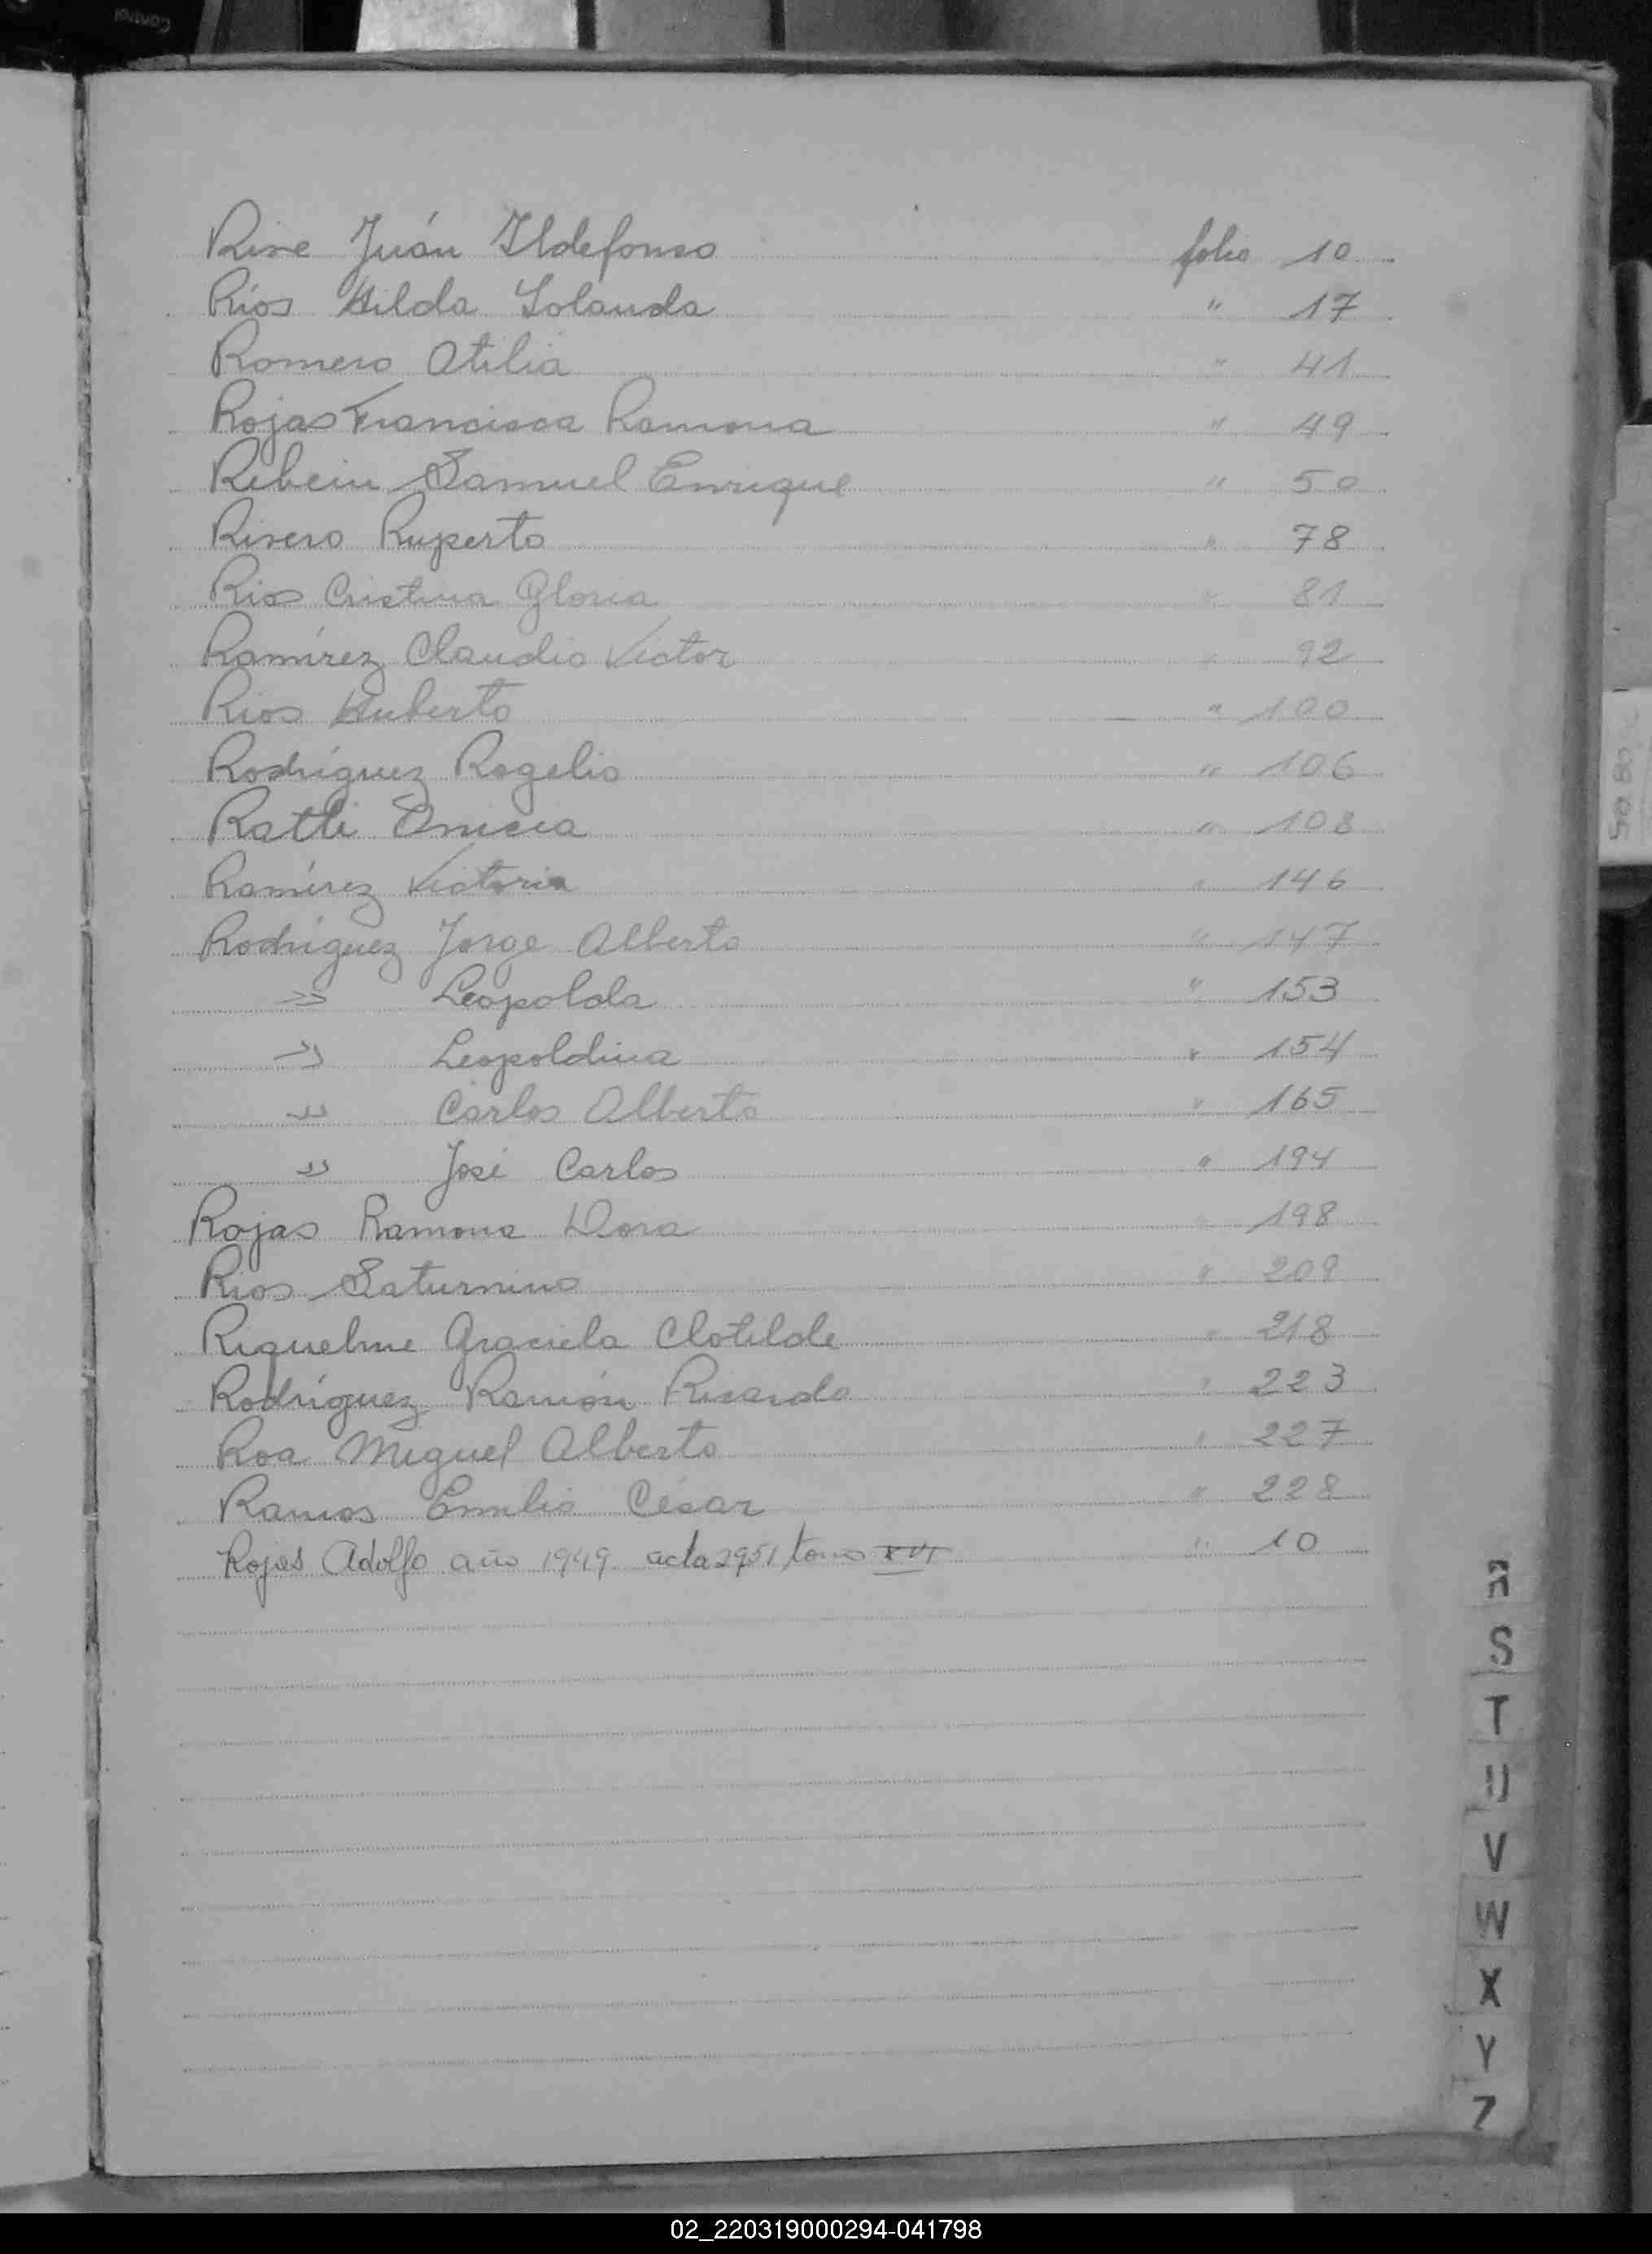 Rive Juán Ildefonso folio 10
Ríos Hilda Yolanda " 17
Romero Otilia " 41
Rojas Francisca Ramona " 49
Ribein Samuel Enrique " 50
Rivero Ruperto " 78
Rios Cristina Gloria " 81
Ramírez Claudio Victor " 92
Rios Huberto " 100
Rodríguez Rogelio " 106
Ratti Enicia " 108
Ramírez Victoria " 146
Rodríguez Jorge Alberto " 147
" Leopolda " 153
" Leopoldina " 154
" Carlos Alberto " 165
" José Carlos " 194
Rojas Ramona Dora " 198
Rios Saturnino " 209
Riquelme Graciela Clotilde " 218
Rodríguez Ramón Ricardo " 223
Roa Miguel Alberto " 227
Ramos Emilio César " 228
Rojas Adolfo año 1949 acta 2951 tomo XVI " 10
R
S
T
U
V
W
X
Y
Z
02_220319000294-041798